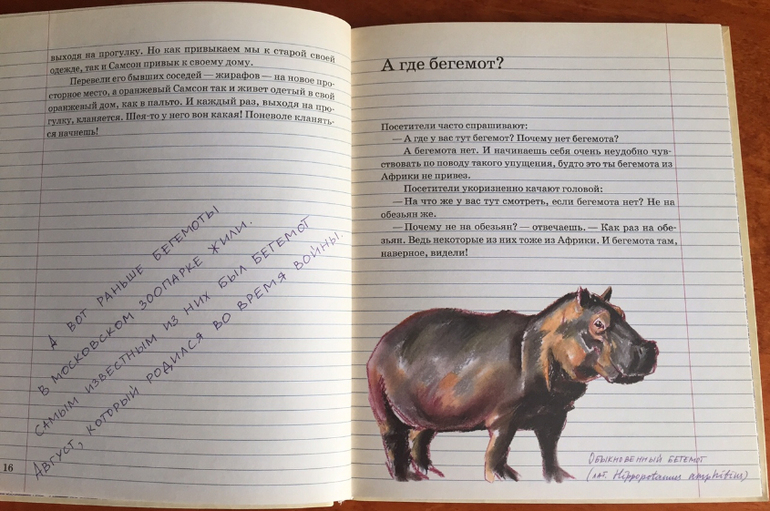 выходя на прогулку. Но как привыкаем мы к старой своей
одежде, так и Самсон привык к своему дому.
Перевели его бывших соседей — жирафов — на новое про-
сторное место, а оранжевый Самсон так и живет одетый в свой
оранжевый дом, как в пальто. И каждый раз, выходя на про-
гулку, кланяется. Шея-то у него вон какая! Поневоле кланять-
ся начнешь!
А ВОТ РАНЬШЕ БЕГЕМОТЫ
В МОСКОВСКОМ ЗООПАРКЕ ЖИЛИ.
САМЫМ ИЗВЕСТНЫМ ИЗ НИХ БЫЛ БЕГЕМОТ
АВГУСТ, КОТОРЫЙ РОДИЛСЯ ВО ВРЕМЯ ВОЙНЫ.
16
А где бегемот?
Посетители часто спрашивают:
— А где у вас тут бегемот? Почему нет бегемота?
А бегемота нет. И начинаешь себя очень неудобно чув-
ствовать по поводу такого упущения, будто это ты бегемота из
Африки не привез.
Посетители укоризненно качают головой:
— На что же у вас тут смотреть, если бегемота нет? Не на
обезьян же.
— Почему не на обезьян? — отвечаешь. — Как раз на обе-
зьян. Ведь некоторые из них тоже из Африки. И бегемота там,
наверное, видели!
ОБЫКНОВЕННЫЙ БЕГЕМОТ
(ЛАТ. Hippopotamus amphibius)